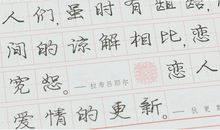 人们,虽时有龃龉,
间的谅解相比,恋
宽恕。——拉布吕耶尔 恋人
爱情的更新。——